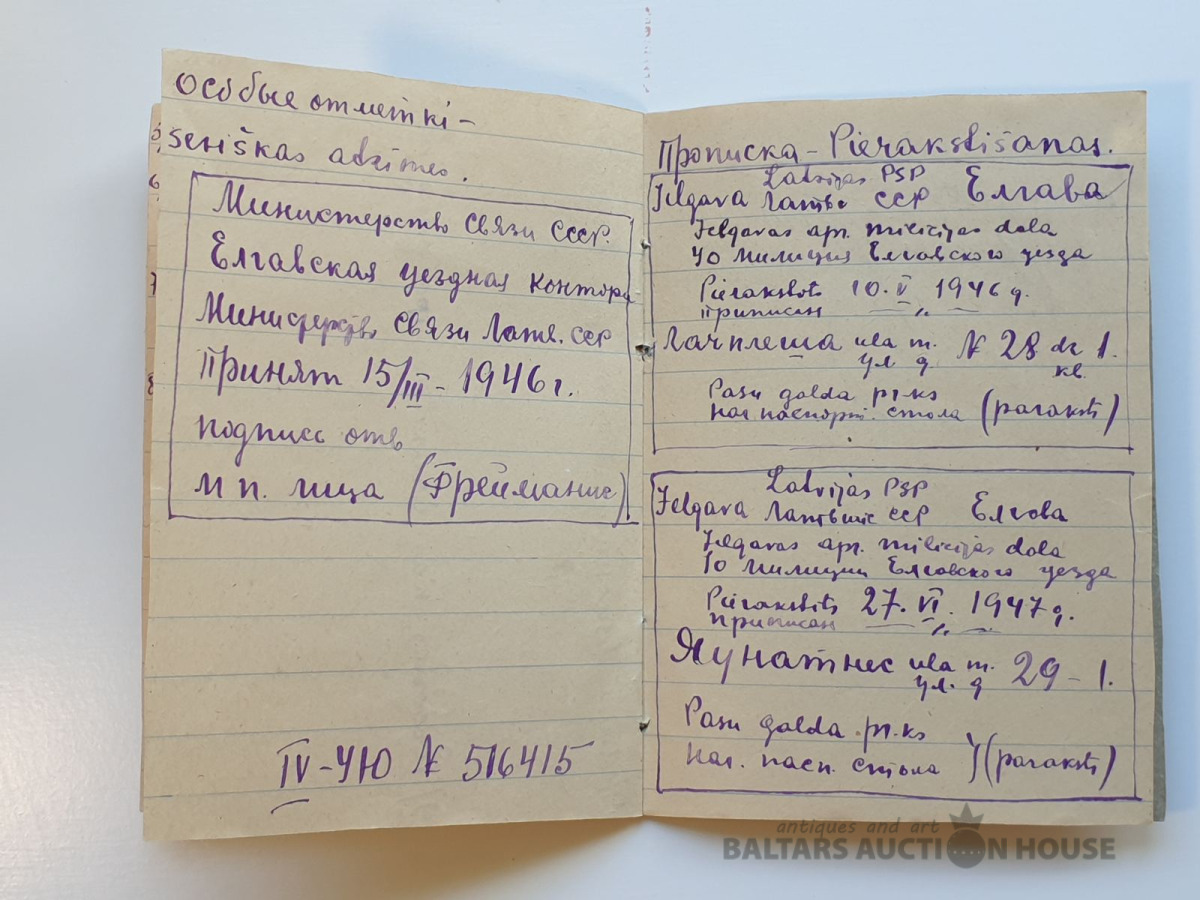 особые отметкі –
seviškas atzimes.
Министерство Связи СССР.
Елгавская уездная контора
Министерство Связи Латв. ССР
Принят 15/III - 1946 г.
подпись отв
м п. лица (Фрейманис)
IV-УЮ № 516415
Прописка - Pierakstišanas.
Latvijas PSP
Jelgava Латв ССР Елгава
Jelgavas apr. milicijas daļa
УО милиция Елгавского уезда
Pierakstīts 10. V 1946 g.
приписан — „ —
Лачплеша iela m. № 28 dz 1.
ул. д кв.
Pasu galda pr.ks
Нач паспорт. стола (paraksts)
Latvijas PSP
Jelgava Латвийс ССР Елгава
Jelgavas apr. milicijas daļa
УО милиции Елгавского уезда
Pierakstīts 27. VI. 1947 g.
приписан — „ —
Яунатнес iela m. 29 - 1.
ул. д
Pasu galda pr.ks
Нач. пасп. стола (paraksts)
antiques and art
BALTARS AUCTION HOUSE